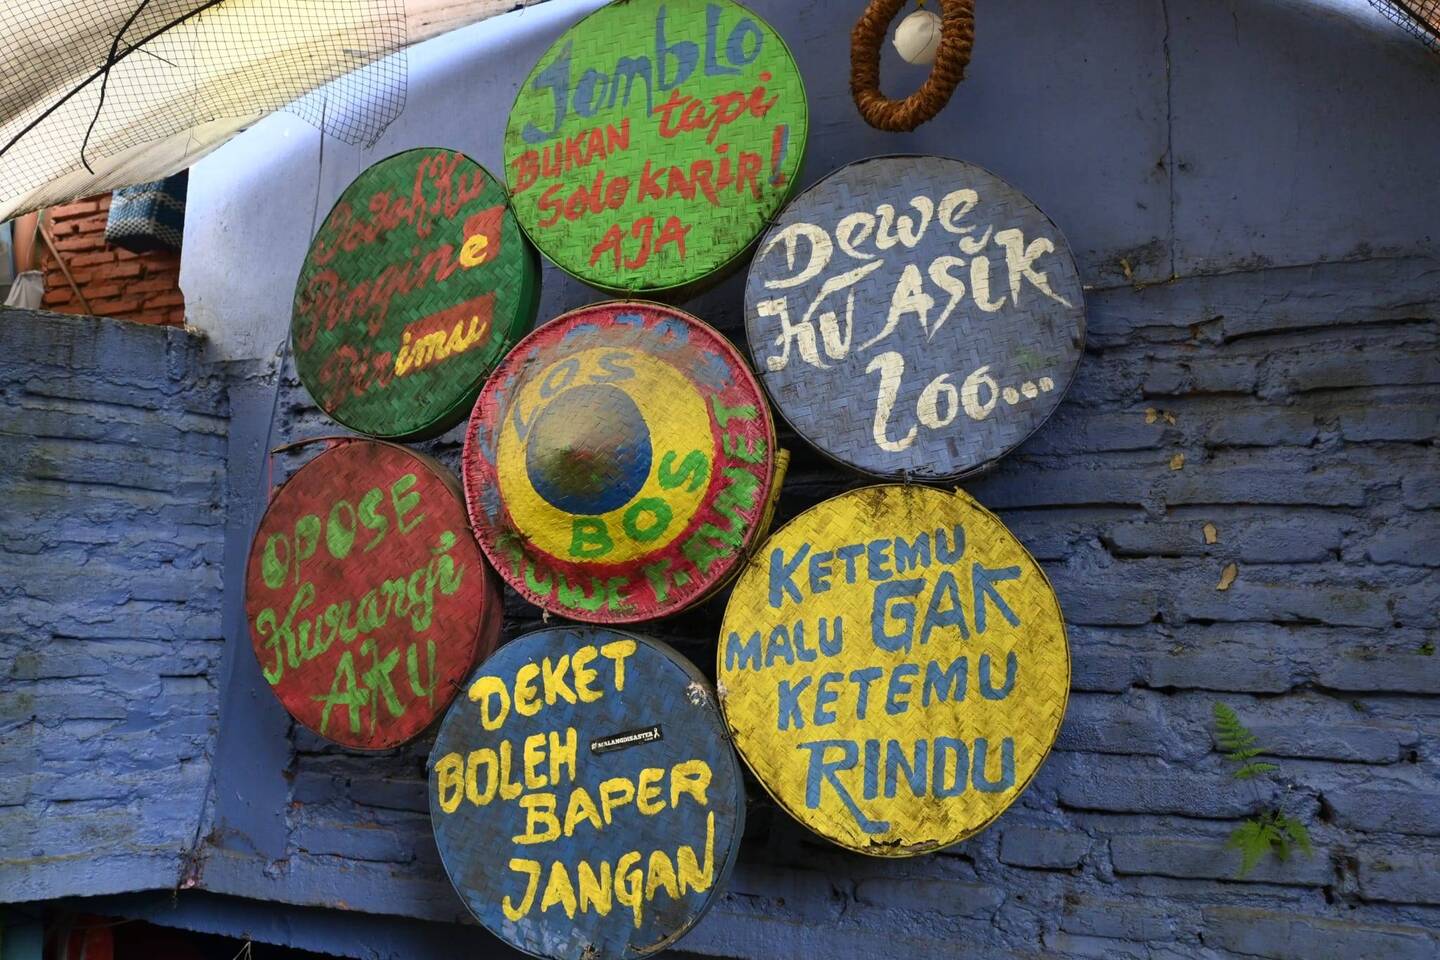 Jomblo
BUKAN tapi
Solo KARIR!
AJA
JodohKu
Pingine
Dirimu
Dewe
KU ASIK
loo...
LOS
BOS
OPOSE
Kurangi
AKU
KETEMU
MALU GAK
KETEMU
RINDU
DEKET
BOLEH
#MALANGDISASTER
BAPER
JANGAN